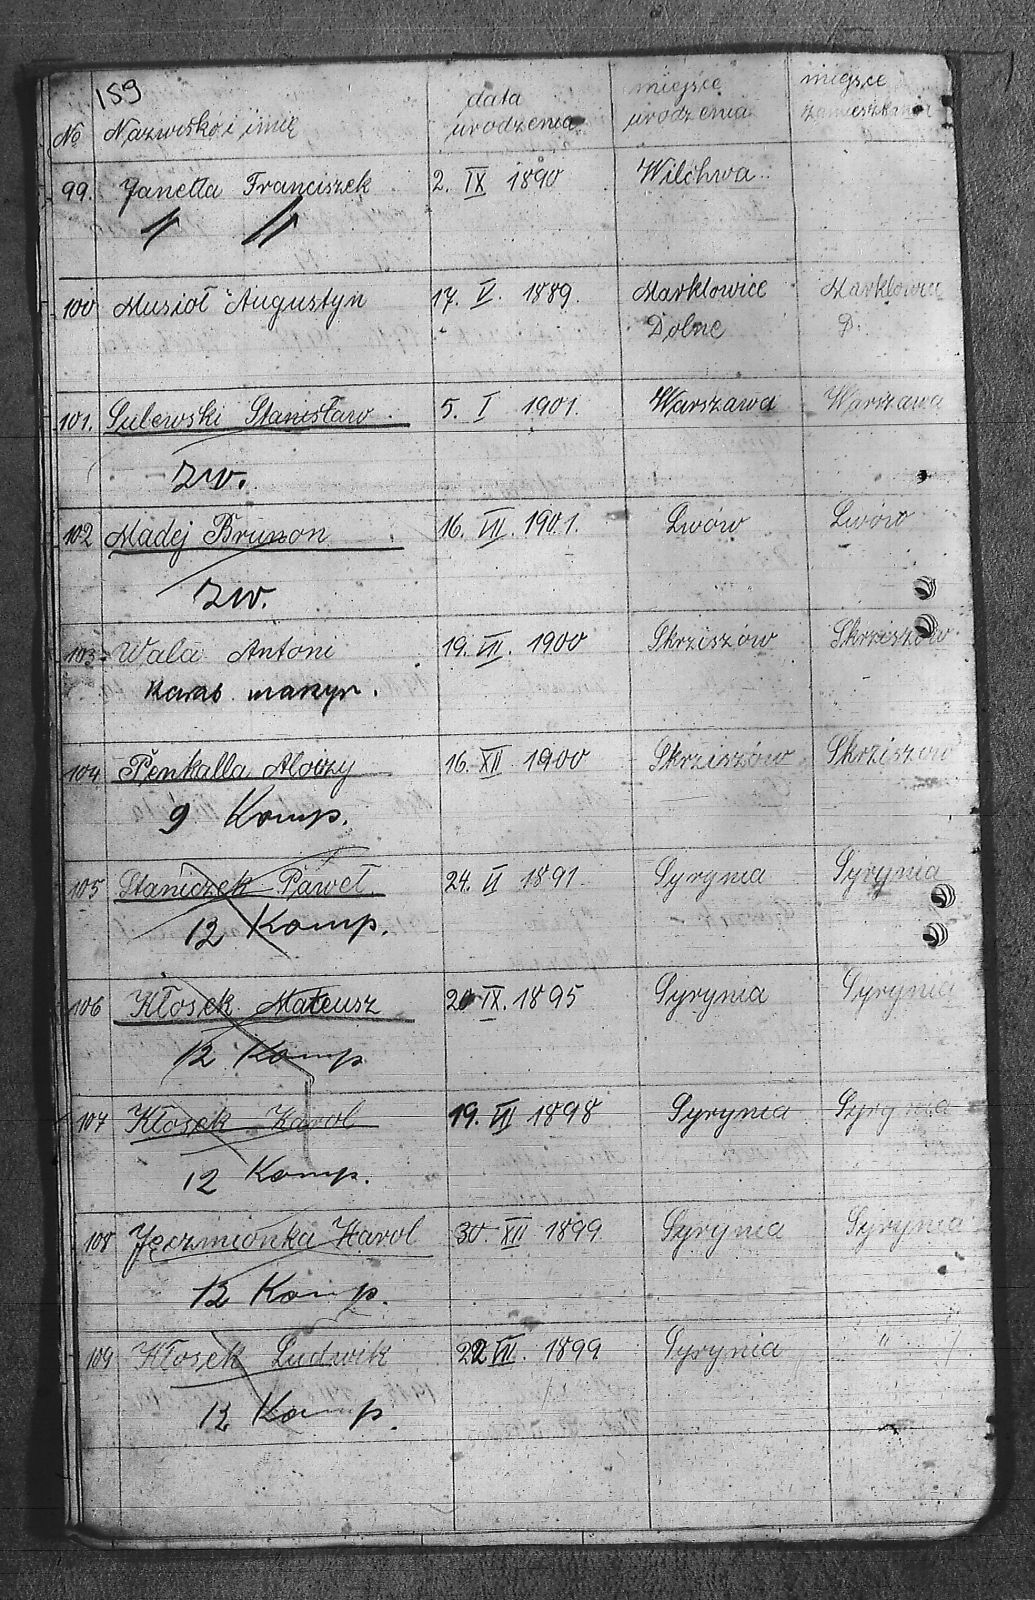 159
No Nazwisko i imię data urodzenia miejsce urodzenia miejsce zamieszkania
99. Janetta Franciszek 2. IX 1890 Wilchwa
100 Musioł Augustyn 17. V. 1889. Marklowice Dolne Marklowice D.
101. Sulewski Stanisław 5. I 1901. Warszawa Warszawa
zw.
102 Madej Brunon 16. VII. 1901. Lwów Lwów
zw.
103 Wala Antoni 19. VII. 1900 Skrziszów Skrziszów
Karab. maszyn.
104 Penkalla Aloizy 16. XII 1900 Skrziszów Skrziszów
9 Komp.
105 Staniczek Paweł 24. VI 1891. Syrynia Syrynia
12 Komp.
106 Kłosek Mateusz 20 IX. 1895 Syrynia Syrynia
12 Komp
107 Kłosek Karol 19. VII 1898 Syrynia Syrynia
12 Komp.
108 Jęczmionka Karol 30. XII 1899 Syrynia Syrynia
12 Komp.
109 Kłosek Ludwik 22 VII. 1899 Syrynia "
12 Komp.